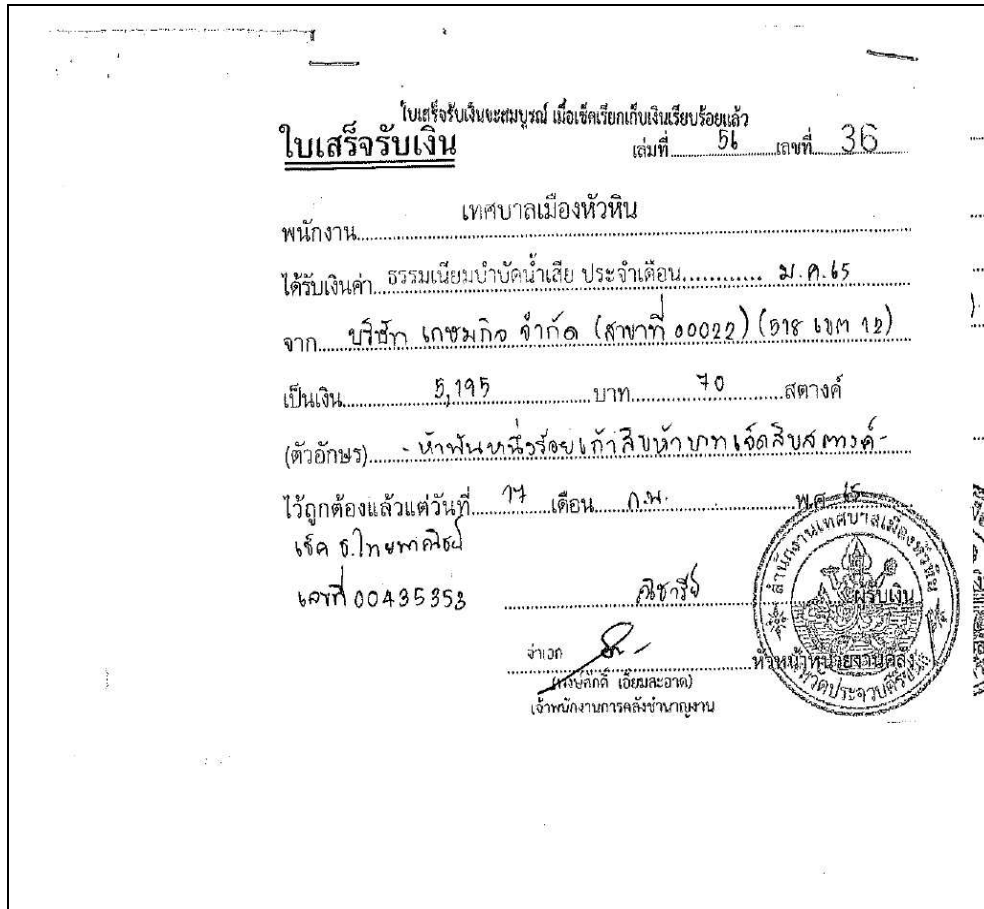 ใบเสร็จรับเงินจะสมบูรณ์ เมื่อเช็คเรียกเก็บเงินเรียบร้อยแล้ว
ใบเสร็จรับเงิน เล่มที่ 56 เลขที่ 36
เทศบาลเมืองหัวหิน
พนักงาน
ได้รับเงินค่า ธรรมเนียมบำบัดน้ำเสีย ประจำเดือน ม.ค.65
จาก บริษัท เกษมกิจ จำกัด (สาขาที่ 00022) (518 เขต 12)
เป็นเงิน 5,195 บาท 70 สตางค์
(ตัวอักษร) - ห้าพันหนึ่งร้อยเก้าสิบห้าบาทเจ็ดสิบสตางค์ -
ไว้ถูกต้องแล้วแต่วันที่ 17 เดือน ก.พ. พ.ศ 65
เช็ค ธ.ไทยพาณิชย์
เลขที่ 00435353
ผู้รับเงิน
จ่าเอก
หัวหน้าหน่วยงานคลัง
เอี่ยมสะอาด)
เจ้าพนักงานการคลังชำนาญงาน
สำนักงานเทศบาลเมืองหัวหิน
จังหวัดประจวบคีรีขันธ์